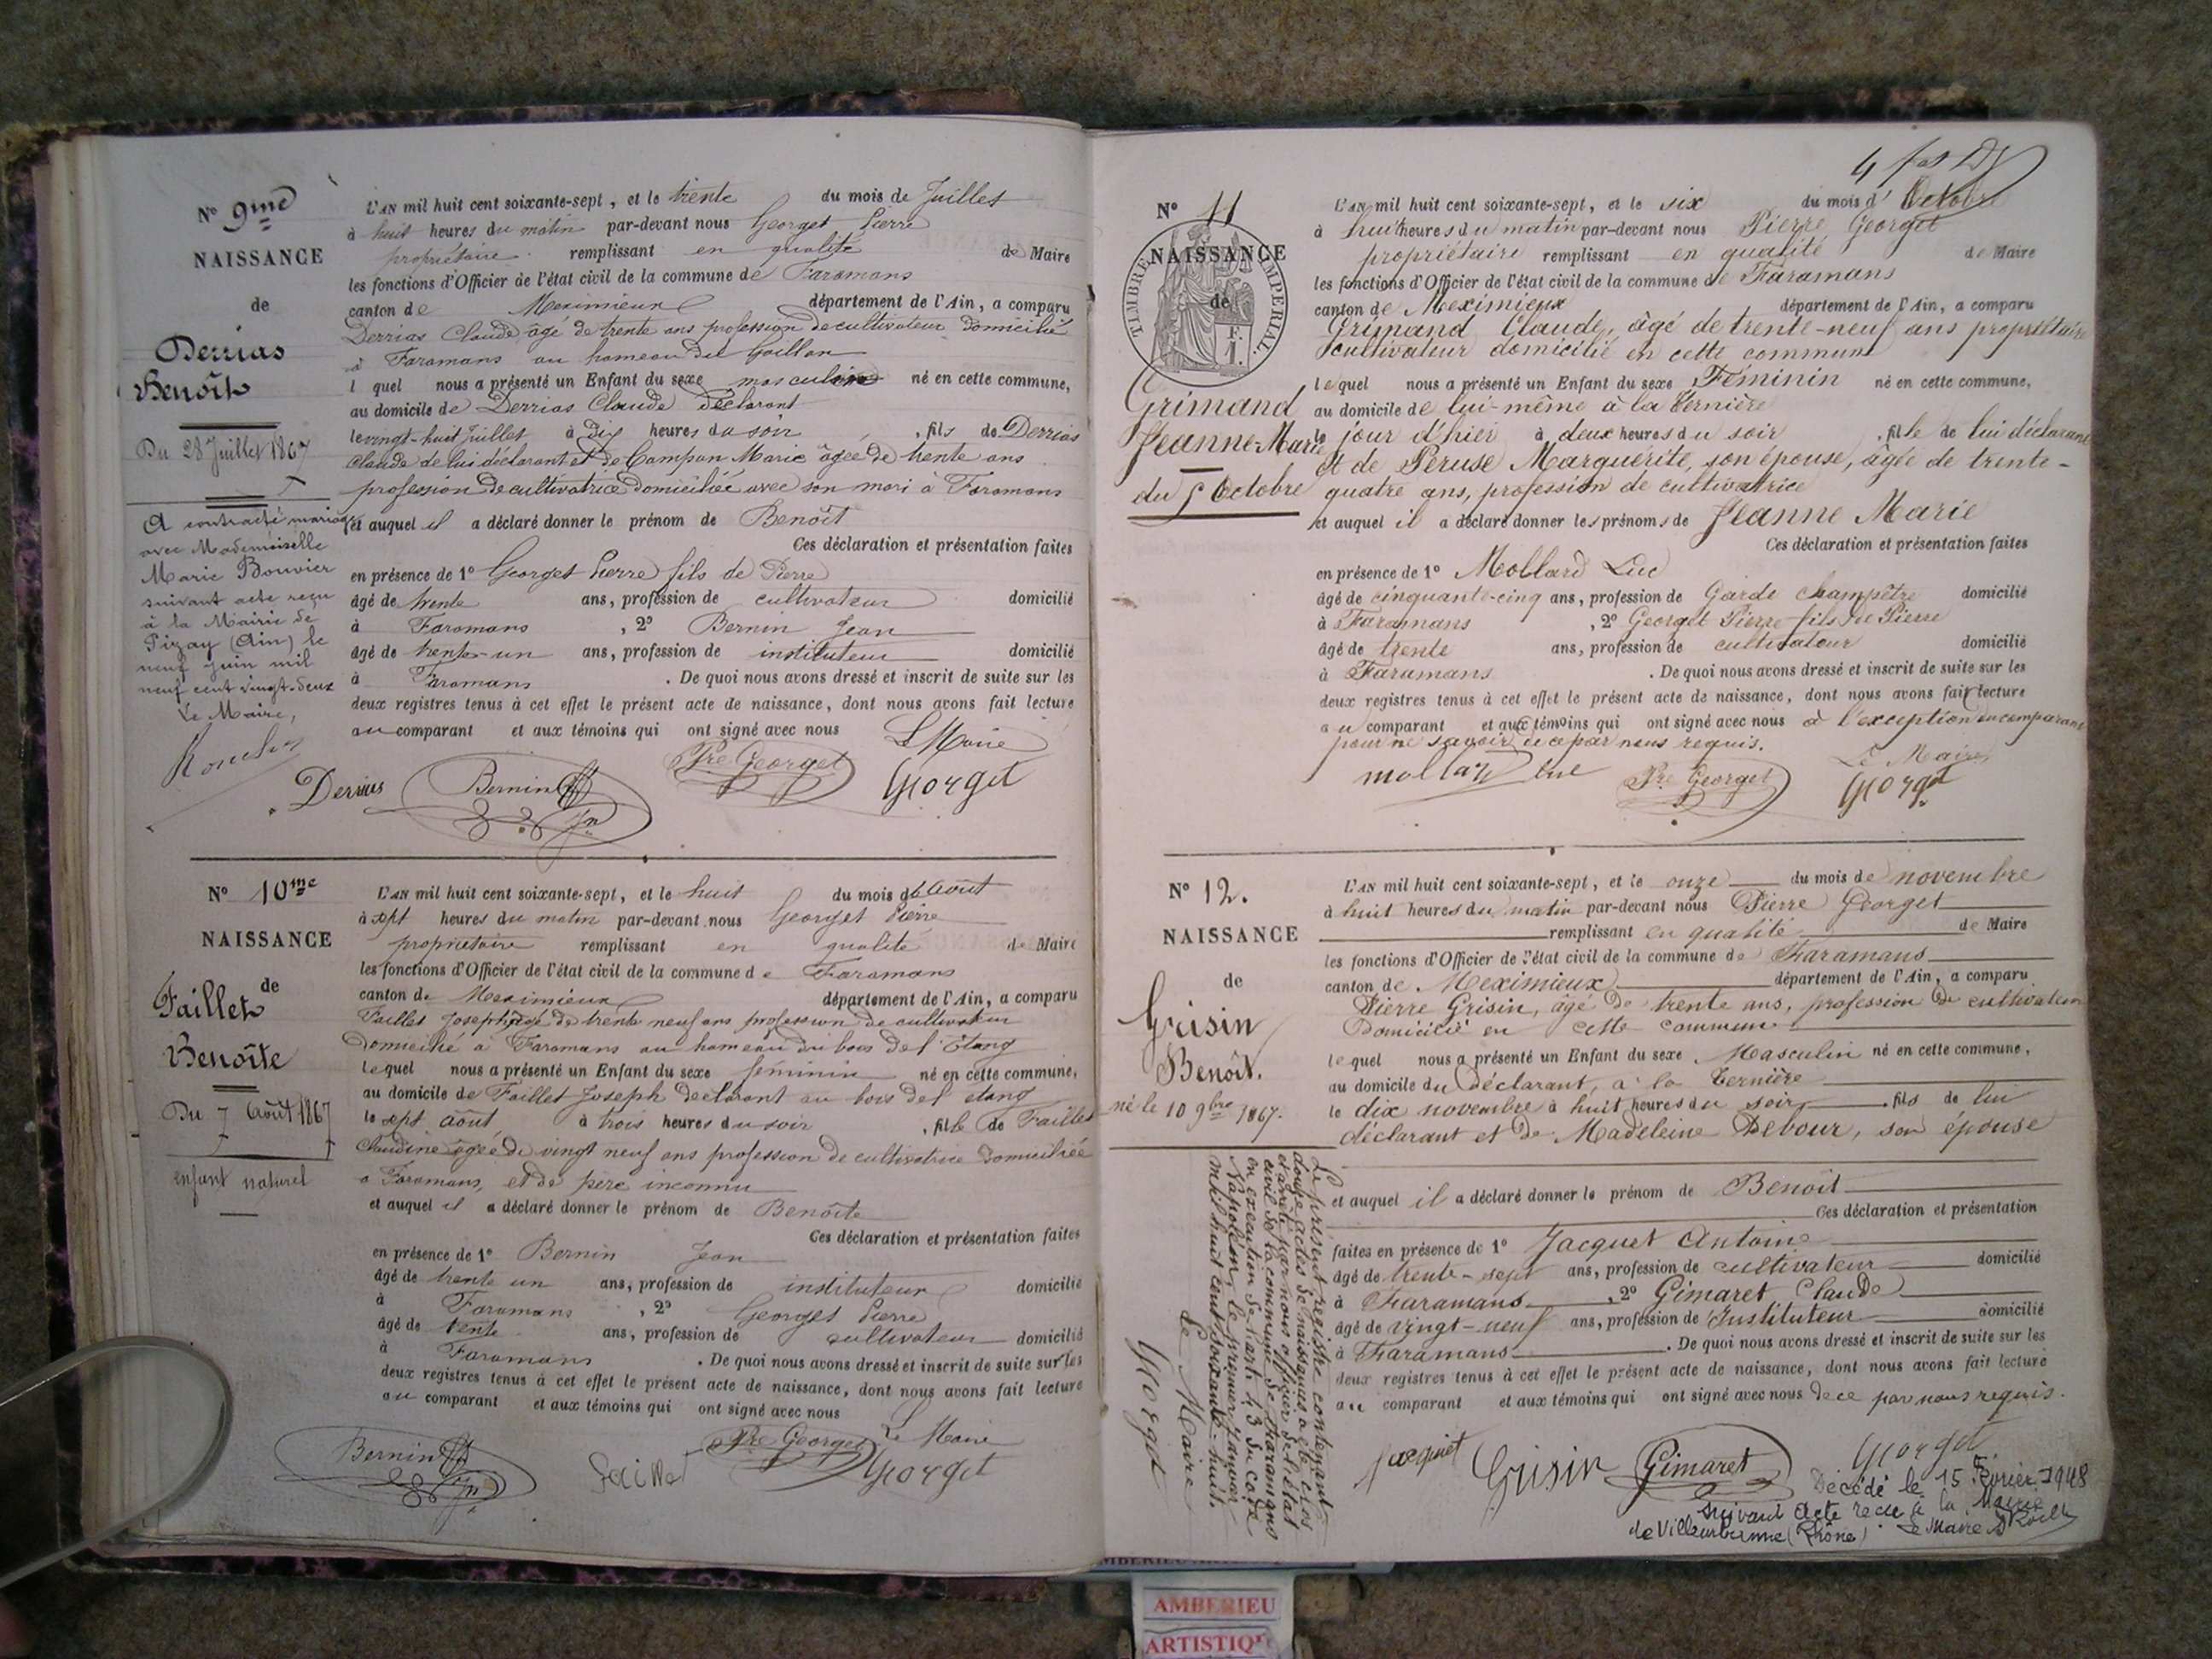 N° 9me
NAISSANCE
de
Derrias
Benoît
Du 28 Juillet 1867
A contracté mariage
avec Mademoiselle
Marie Bouvier
suivant acte reçu
à la Mairie de
Pizay (Ain) le
neuf juin mil
neuf cent vingt-deux
Le Maire,
L'AN mil huit cent soixante-sept, et le trente du mois de Juillet
à huit heures du matin par-devant nous Georget Pierre
propriétaire remplissant en qualité de Maire
les fonctions d'Officier de l'état civil de la commune de Faramans
canton de Meximieux département de l'Ain, a comparu
Derrias Claude âgé de trente ans profession de cultivateur domicilié
à Faramans au hameau du Gaillon
l quel nous a présenté un Enfant du sexe masculin né en cette commune,
au domicile de Derrias Claude déclarant
le vingt-huit Juillet à dix heures du soir, fils de Derrias
Claude de lui déclarant et de Campan Marie âgée de trente ans
profession de cultivatrice domiciliée avec son mari à Faramans
et auquel il a déclaré donner le prénom de Benoît
Ces déclaration et présentation faites
en présence de 1° Georget Pierre fils de Pierre
âgé de trente ans, profession de cultivateur domicilié
à Faramans, 2° Bernin Jean
âgé de trente-un ans, profession de instituteur domicilié
à Faramans. De quoi nous avons dressé et inscrit de suite sur les
deux registres tenus à cet effet le présent acte de naissance, dont nous avons fait lecture
au comparant et aux témoins qui ont signé avec nous Le Maire
Derrias Bernin Jn Pre Georget Georget
N° 10me
NAISSANCE
de
Faillet
Benoîte
Du 7 Août 1867
enfant naturel
L'AN mil huit cent soixante-sept, et le huit du mois d'Août
à sept heures du matin par-devant nous Georget Pierre
propriétaire remplissant en qualité de Maire
les fonctions d'Officier de l'état civil de la commune de Faramans
canton de Meximieux département de l'Ain, a comparu
Faillet Joseph âgé de trente neuf ans profession de cultivateur
domicilié à Faramans au hameau du bois de l'Etang
lequel nous a présenté un Enfant du sexe féminin né en cette commune,
au domicile de Faillet Joseph déclarant au bois de l'etang
le sept août, à trois heures du soir, fille de Faillet
Claudine âgée de vingt neuf ans profession de cultivatrice domiciliée
à Faramans, et de père inconnu
et auquel il a déclaré donner le prénom de Benoîte
Ces déclaration et présentation faites
en présence de 1° Bernin Jean
âgé de trente un ans, profession de instituteur domicilié
à Faramans, 2° Georget Pierre
âgé de trente ans, profession de cultivateur domicilié
à Faramans. De quoi nous avons dressé et inscrit de suite sur les
deux registres tenus à cet effet le présent acte de naissance, dont nous avons fait lecture
au comparant et aux témoins qui ont signé avec nous
Bernin Jn Faillet Pre Georget Le Maire
Georget
N° 11
NAISSANCE
de
TIMBRE IMPERIAL
F.
1.
Grimand
Jeanne-Marie
du 5 Octobre
L'AN mil huit cent soixante-sept, et le six du mois d'Octobre
à huit heures du matin par-devant nous Pierre Georget
propriétaire remplissant en qualité de Maire
les fonctions d'Officier de l'état civil de la commune de Faramans
canton de Meximieux département de l'Ain, a comparu
Grimand Claude, âgé de trente-neuf ans propriétaire
cultivateur domicilié en cette commune
lequel nous a présenté un Enfant du sexe Féminin né en cette commune,
au domicile de lui-même à la Bernière
le jour d'hier à deux heures du soir, fille de lui déclarant
et de Peruse Marguerite, son épouse, âgée de trente-
quatre ans, profession de cultivatrice
et auquel il a déclaré donner les prénoms de Jeanne Marie
Ces déclaration et présentation faites
en présence de 1° Mollard Luc
âgé de cinquante-cinq ans, profession de Garde Champêtre domicilié
à Faramans, 2° Georget Pierre fils de Pierre
âgé de trente ans, profession de cultivateur domicilié
à Faramans. De quoi nous avons dressé et inscrit de suite sur les
deux registres tenus à cet effet le présent acte de naissance, dont nous avons fait lecture
au comparant et aux témoins qui ont signé avec nous à l'exception du comparant
pour ne savoir de ce par nous requis.
Le Maire
mollard luc Pre Georget Georget
N° 12.
NAISSANCE
de
Grisin
Benoît.
né le 10 9bre 1867.
L'AN mil huit cent soixante-sept, et le onze du mois de novembre
à huit heures du matin par-devant nous Pierre Georget
remplissant en qualité de Maire
les fonctions d'Officier de l'état civil de la commune de Faramans
canton de Meximieux département de l'Ain, a comparu
Pierre Grisin, âgé de trente ans, profession de cultivateur
domicilié en cette commune
lequel nous a présenté un Enfant du sexe Masculin né en cette commune,
au domicile du déclarant, à la Bernière
le dix novembre à huit heures du soir, fils de lui
déclarant et de Madeleine Debour, son épouse
et auquel il a déclaré donner le prénom de Benoît
Ces déclaration et présentation
faites en présence de 1° Jacquet Antoine
âgé de trente-sept ans, profession de cultivateur domicilié
à Faramans, 2° Gimaret Claude
âgé de vingt-neuf ans, profession de Instituteur domicilié
à Faramans. De quoi nous avons dressé et inscrit de suite sur les
deux registres tenus à cet effet le présent acte de naissance, dont nous avons fait lecture
au comparant et aux témoins qui ont signé avec nous de ce par nous requis.
Jacquet Grisin Gimaret Georget
Décédé le 15 Février 1948
suivant Acte reçu à la Mairie
de Villeurbanne (Rhône). Le Maire
Le présent registre contenant
douze actes de naissances a été clos
et arrêté par nous officier de l'état
civil de la commune de Faramans
en exécution de l'art. 43 du code
Napoléon, le premier janvier
mil huit cent soixante-huit.
Le Maire
Georget
AMBERIEU
ARTISTIQ